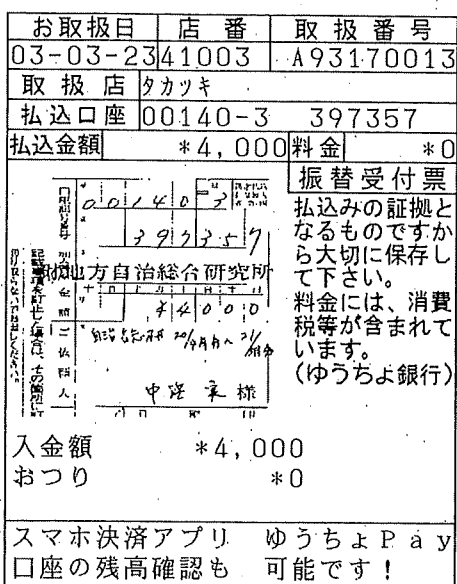 お取扱日 店番 取扱番号
03-03-23 41003 A93170013
取扱店 タカツキ
払込口座 00140-3 397357
払込金額 *4,000 料金 *0
振替受付票
払込みの証拠と
なるものですか
ら大切に保存し
て下さい。
料金には、消費
税等が含まれて
います。
(ゆうちょ銀行)
00140 3
397357
地方自治総合研究所
金額
¥4000
ご依頼人
様
入金額 *4,000
おつり *0
スマホ決済アプリ ゆうちょPay
口座の残高確認も 可能です!